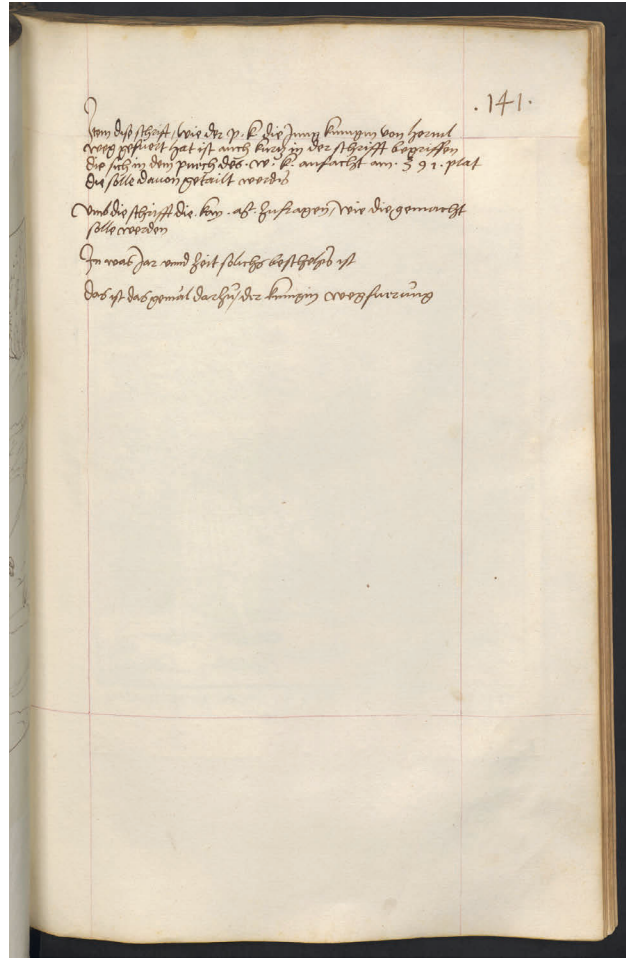 .141.
Item dise schrifft, wie der p. k. die Jung kunigin von hernil
weg gefuert hat ist auch kurtz in der schrifft begriffen
die sich in dem puech des. w. k. anfacht am. 391. plat
die solle davon getailt werden
Umb die schrifft die. kay. . zufragen, wie die gemacht
solle werden
In was Jar unnd Zeit solichs beschehen ist
das ist das gemäl darzu, der kunigin wegfuerung